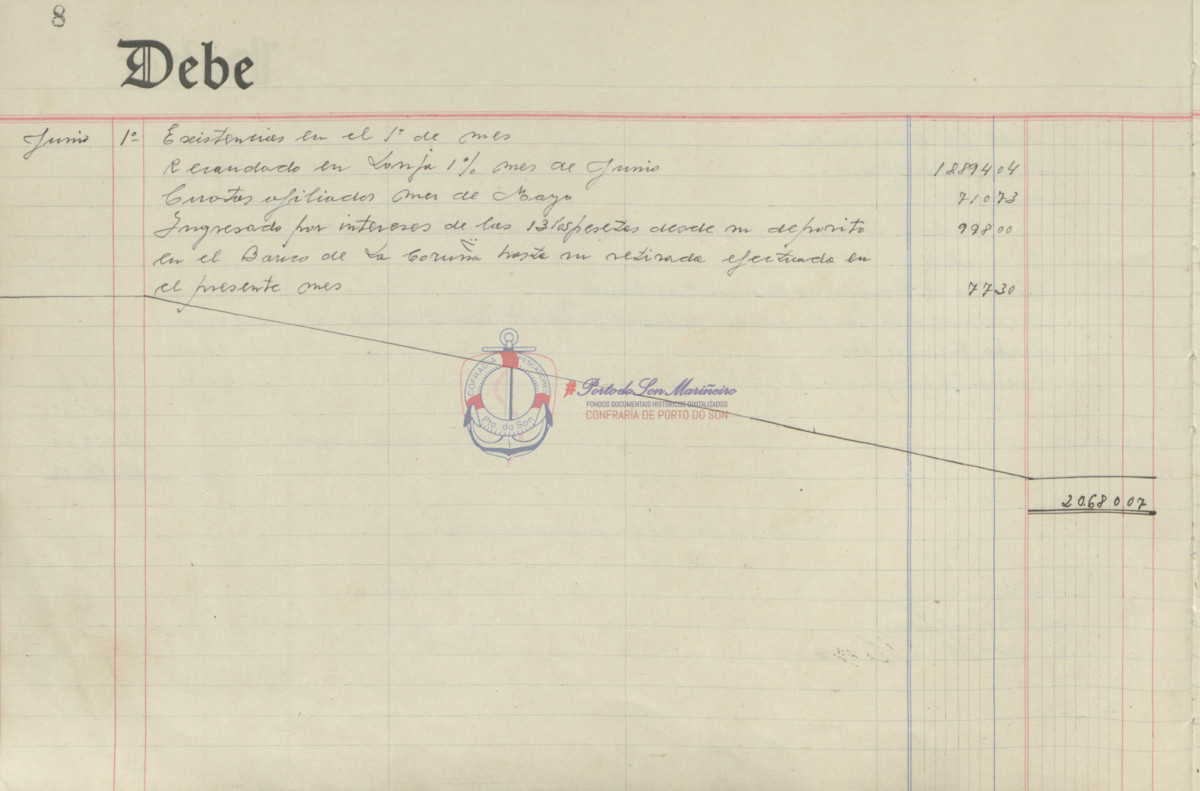 8
Debe
Junio 1º Existencias en el 1º de mes 18894 04
Recaudado en Lonja 1% mes de Junio 710 73
Cuotas afiliados mes de Mayo 998 00
Ingresado por intereses de las pesetas desde su deposito
en el Banco de La Coruña hasta su retirada efectuada en
el presente mes 77 30
COFRADÍA PESCADORES
Pto. do Son
#Porto do Son Mariñeiro
FONDOS DOCUMENTAIS HISTÓRICOS DIGITALIZADOS
CONFRARÍA DE PORTO DO SON
20.680 07